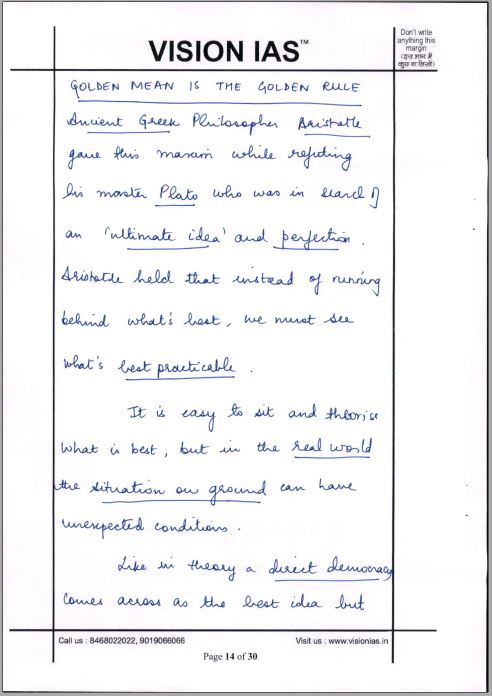 VISION IAS™
Don't write
anything this
margin
(इस भाग में
कुछ ना लिखें)
GOLDEN MEAN IS THE GOLDEN RULE
Ancient Greek Philosopher Aristotle
gave this maxim while refuting
his master Plato who was in search of
an 'ultimate idea' and perfection.
Aristotle held that instead of running
behind what's best, we must see
what's best practicable.
It is easy to sit and theorise
what is best, but in the real world
the situation on ground can have
unexpected conditions.
Like in theory a direct democracy
comes across as the best idea but
Call us : 8468022022, 9019066066
Visit us : www.visionias.in
Page 14 of 30